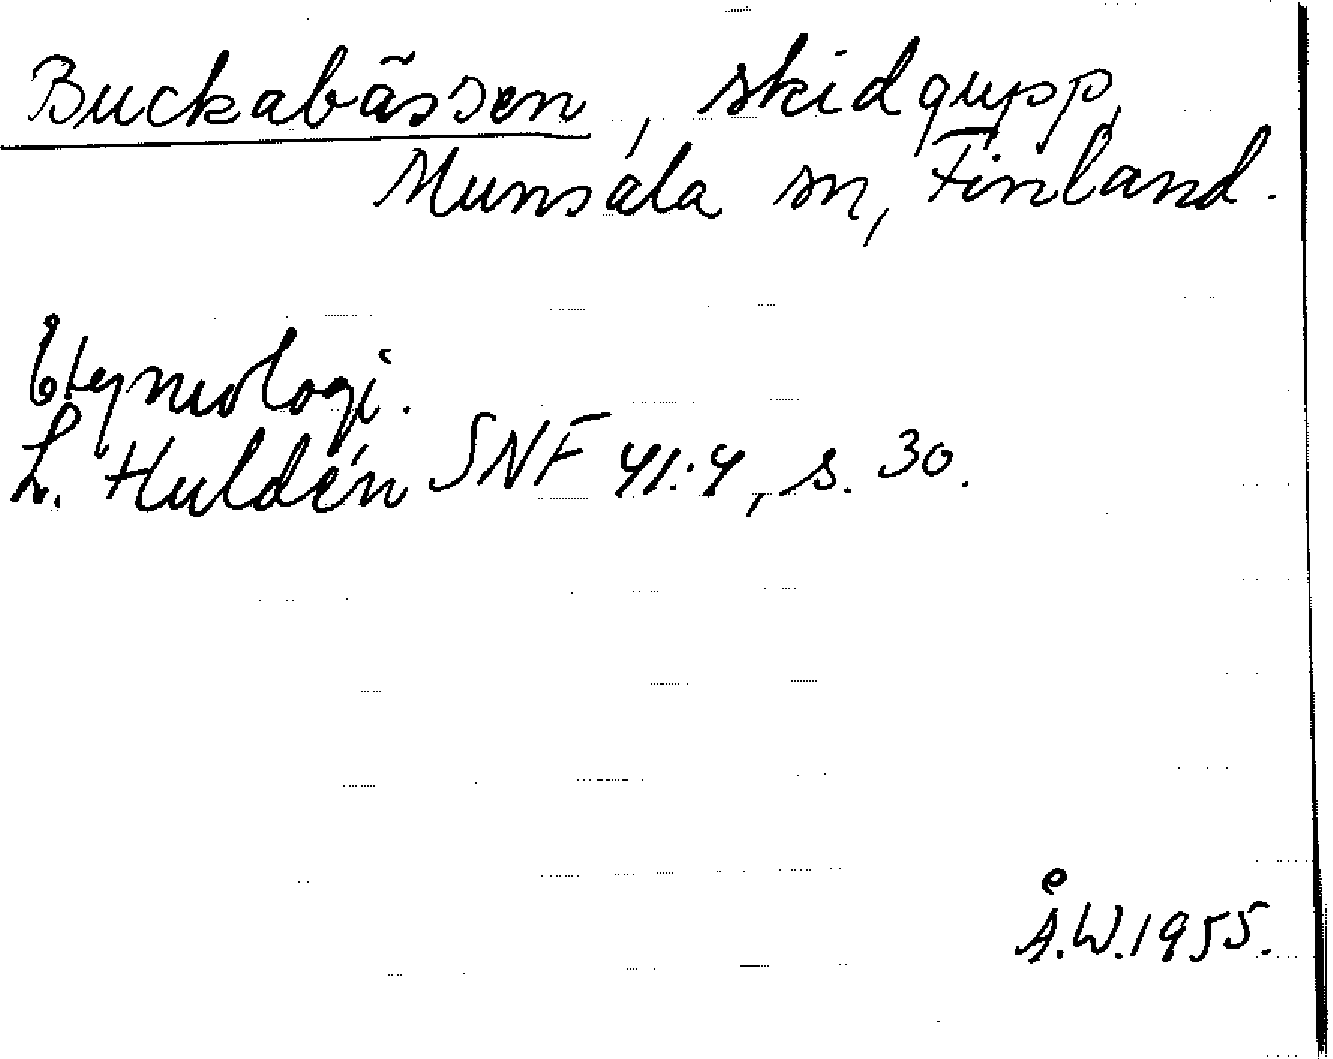 Buckabässen, skidgupp,
Munsala sn, Finland.
Etymologi.
L. Huldén SNF 41:4, s. 30.
Å.W. 1955.